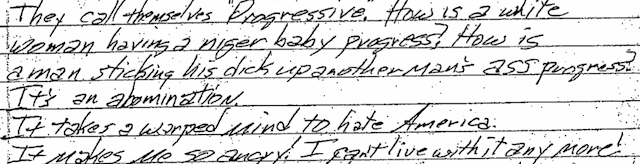 They call themselves "Progressive". How is a white
woman having a niger baby progress? How is
a man sticking his dick up another man's ass progress?
It's an abomination.
It takes a warped mind to hate America.
It makes me so angry! I can't live with it any more!